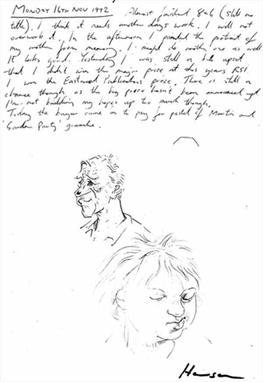 MONDAY 16TH NOV 1992. Almost finished 8x6 (still no
title). I think it needs another days work. I will not
overwork it. In the afternoon I painted the portrait of
my mother from memory. I might do another one as well
It looks good. Yesterday I was still a bit upset
that I didn't win the major prize at this years RSL
I won the Eastwood Publications' prize. There is still a
chance though as the big prize hasn't been announced yet
I'm not building my hopes up too much though.
Today the buyer came in to pay for pastel of Martin and
'Garden Party' gouache.
Hansen